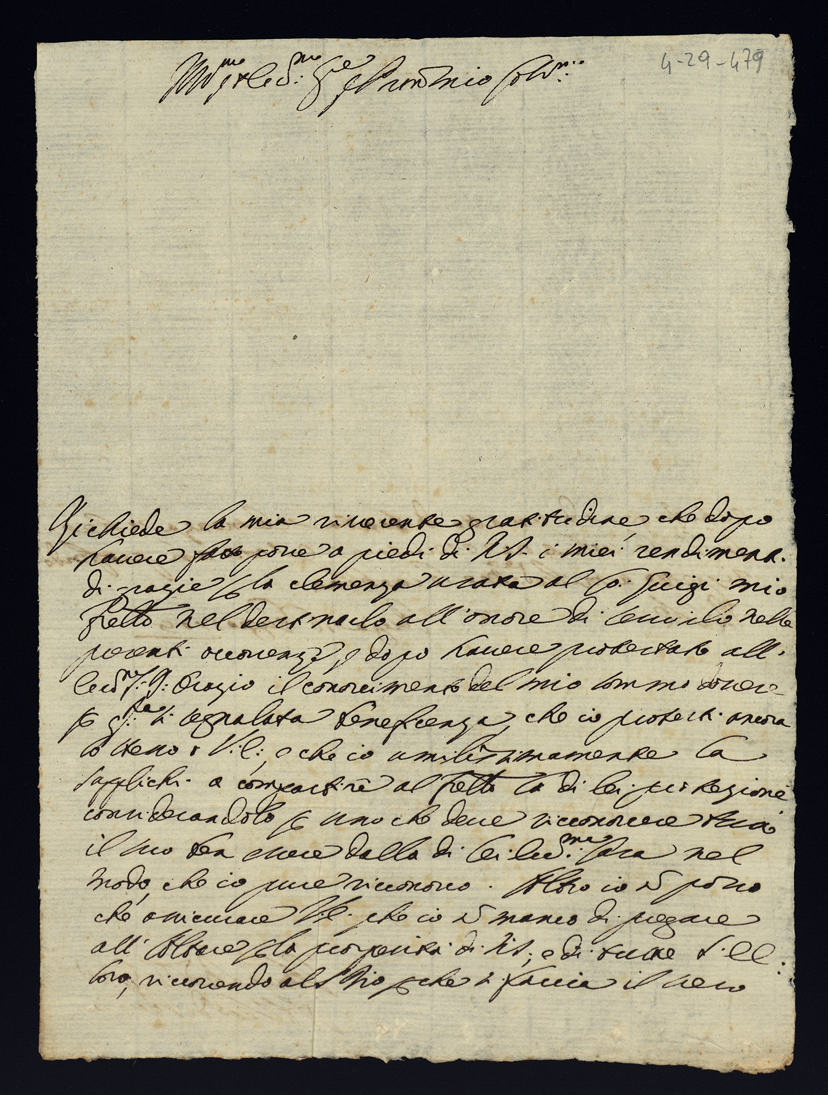 4-29-479
Ill.mo et Ecc.mo Sig.re e Pron mio Col.mo
Richiede la mia riverente gratitudine, che dopo
havere fatto porre a piedi di V.A. i miei rendimenti
di grazie p la clemenza usata al Co. Luigi mio
fratto nel destinarlo all'onore di servirlo nelle
presenti occorenze, e dopo havere protestato all'
Ecc.mo S. Orazio il conoscimento del mio sommo dovere
p q.sta segnalata beneficenza, che io protesti ancora
lo stesso a V.E.; e che io umilissimamente la
supplichi a compartire al fratto la di lei protezione
considerandolo p uno che deve riconoscere tutto
il suo ben essere dalla di lei Ecc.ma Casa nel
modo, che io pure riconosco. Altro io ñ posso
che assicurare V.E. che io ñ manco di pregare
all'Altare p la prosperità di V.A., e di tutte l'EE.
loro, ricorrendo al S. Dio p che si faccia il vero